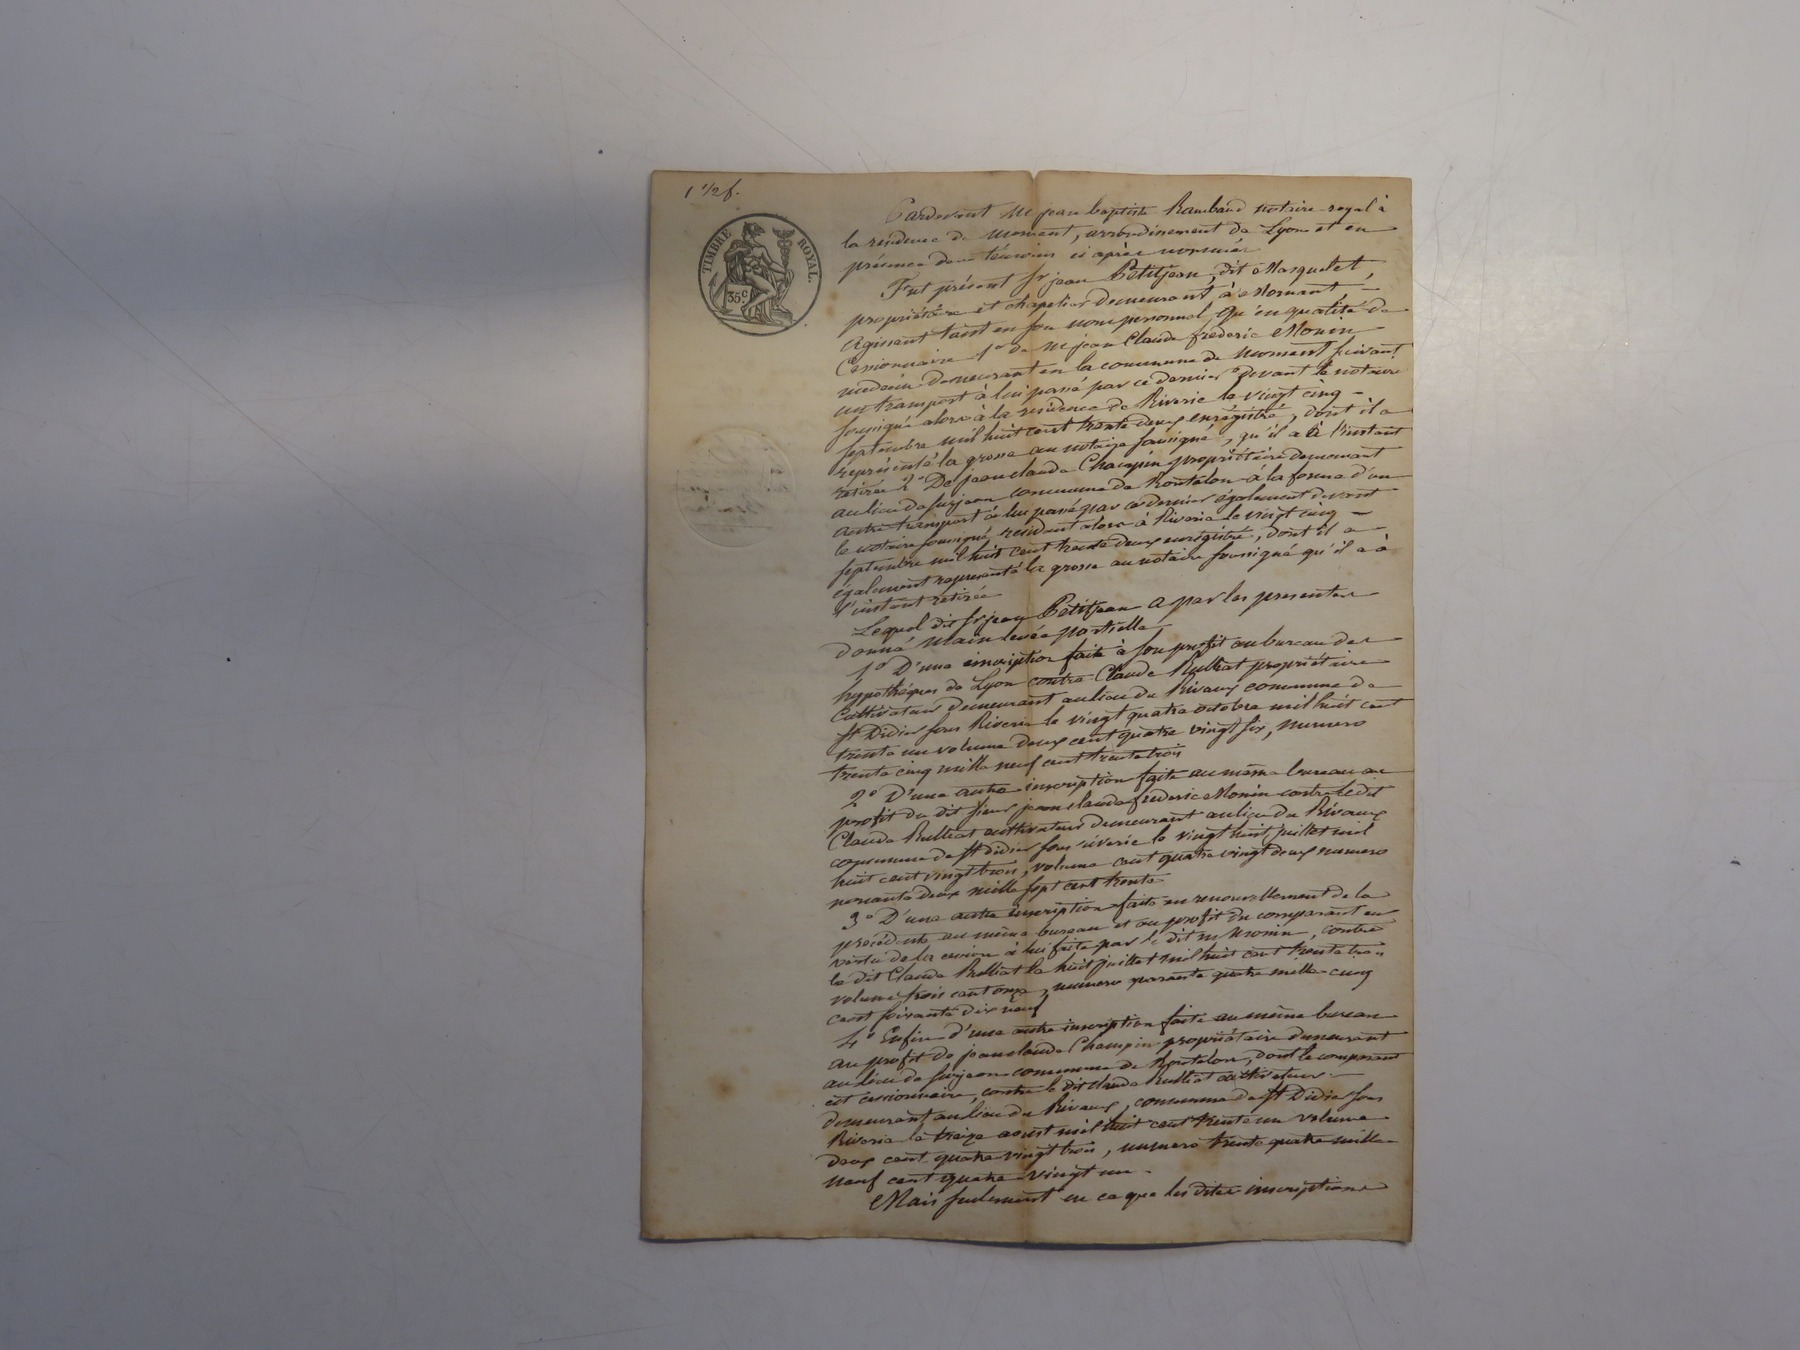 1 1/2 f.
TIMBRE ROYAL.
35 c.
Pardevant Me jean baptiste Rambaud notaire royal à
la residence de Mornant, arrondissement de Lyon et en
présence des témoins ci après nommés
Fut présent Sr jean Petitjean, dit Masquelet,
propriétaire et chapelier demeurant à Mornant,
Agissant tant en son nom personnel, qu'en qualité de
Cessionnaire 1o de Mr jean Claude frederic Monin
médecin demeurant en la commune de Mornant suivant
un transport à lui passé par ce dernier devant le notaire
soussigné alors à la résidence de Riverie le vingt cinq
septembre mil huit cent trente deux enrégistré, dont il a
représenté la grosse au notaire soussigné, qu'il a à l'instant
retirée 2o De jean claude Champin propriétaire demeurant
au lieu de surjeon commune de Rontalon à la forme d'un
autre transport à lui passé par ce dernier également devant
le notaire soussigné, residant alors à Riverie le vingt cinq
septembre mil huit cent trente deux enregistré, dont il a
également representé la grosse au notaire soussigné qu'il a à
l'instant retirée
Lequel dit Sr jean Petitjean a par les presentes
donné main levée partielle
1o D'une inscription faite à son profit au bureau des
hypothèques de Lyon contre Claude Rulliat propriétaire
Cultivateur demeurant au lieu du Rivaux commune de
St Didier sous Riverie le vingt quatre octobre mil huit cent
trente un volume deux cent quatre vingt six, numero
trente cinq mille neuf cent trente trois
2o D'une autre inscription faite au même bureau au
profit du dit sieur jean claude frederic Monin contre le dit
Claude Rulliat cultivateur demeurant au lieu du Rivaux
commune de St didier sous riverie le vingt huit juillet mil
huit cent vingt trois, volume cent quatre vingt deux numero
nonante deux mille sept cent trente
3o D'une autre inscription faite en renouvellement de la
précédente au même bureau et au profit du comparant en
vertu de la cession à lui faite par le dit mr Monin, contre
le dit Claude Rulliat le huit juillet mil huit cent trente trois
volume trois cent onze, numero quarante quatre mille cinq
cent soixante dix neuf
4o Enfin d'une autre inscription faite au même bureau
au profit de jean claude Champin propriétaire demeurant
au lieu de surjeon commune de Rontalon, dont le comparant
est cessionnaire, contre le dit Claude Rulliat cultivateur
demeurant au lieu du Rivaux, commune de St Didier sous
Riverie le treize aoust mil huit cent trente un volume
deux cent quatre vingt trois, numero trente quatre mille
neuf cent quatre vingt un.
Mais seulement en ce que les dites inscriptions